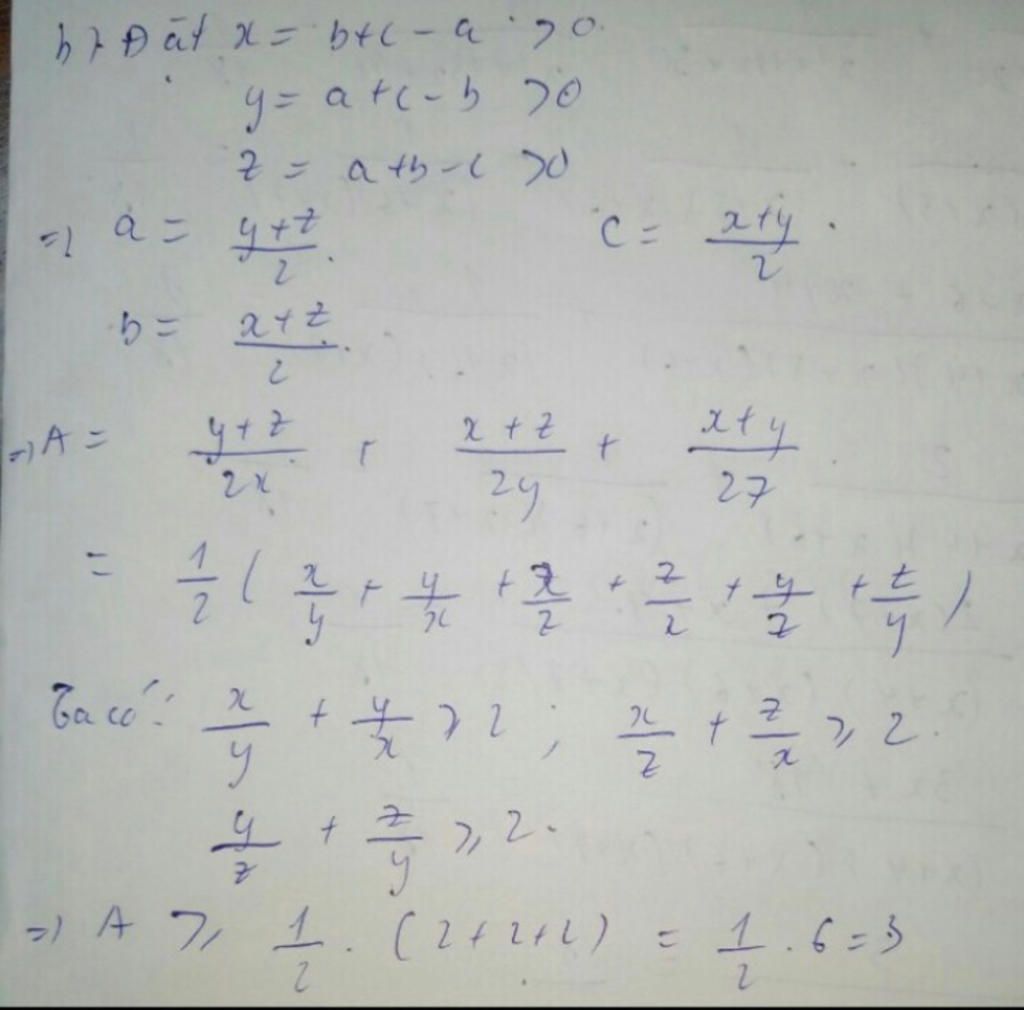 b) Đặt x = b+c-a > 0.
y = a+c-b > 0
z = a+b-c > 0
=> a = \frac{y+z}{2}. c = \frac{x+y}{2}.
b = \frac{x+z}{2}.
=> A = \frac{y+z}{2x} + \frac{x+z}{2y} + \frac{x+y}{2z}
= \frac{1}{2} ( \frac{x}{y} + \frac{y}{x} + \frac{x}{z} + \frac{z}{x} + \frac{y}{z} + \frac{z}{y} )
Ta có: \frac{x}{y} + \frac{y}{x} ⩾ 2 ; \frac{x}{z} + \frac{z}{x} ⩾ 2.
\frac{y}{z} + \frac{z}{y} ⩾ 2.
=> A ⩾ \frac{1}{2} . (2+2+2) = \frac{1}{2} . 6 = 3